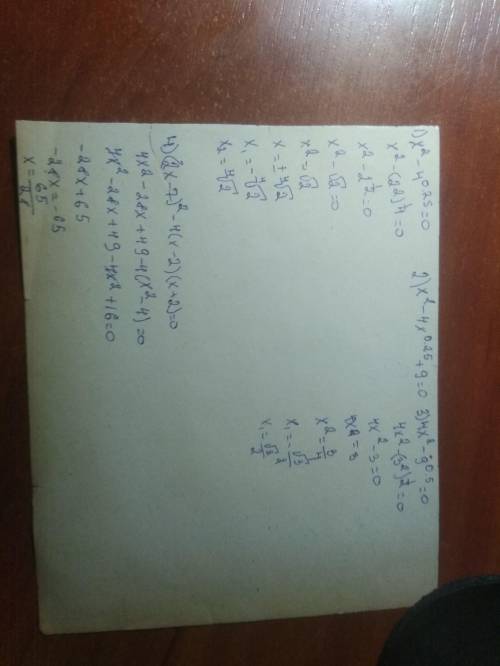 1) x² - 4^0.25 = 0
x² - (2²)^¼ = 0
x² - 2^½ = 0
x² - √2 = 0
x² = √2
x = ± ⁴√2
x₁ = - ⁴√2
x₂ = ⁴√2
2) x² - 4x^0.25 + 9 = 0
3) 4x² - 9^0.5 = 0
4x² - (3²)^½ = 0
4x² - 3 = 0
4x² = 3
x² = 3/4
x₁ = - √3/2
x₁ = √3/2
4) (2x - 7)² - 4(x - 2)(x + 2) = 0
4x² - 28x + 49 - 4(x² - 4) = 0
4x² - 28x + 49 - 4x² + 16 = 0
-28x + 65
-28x = -65
x = 65/28